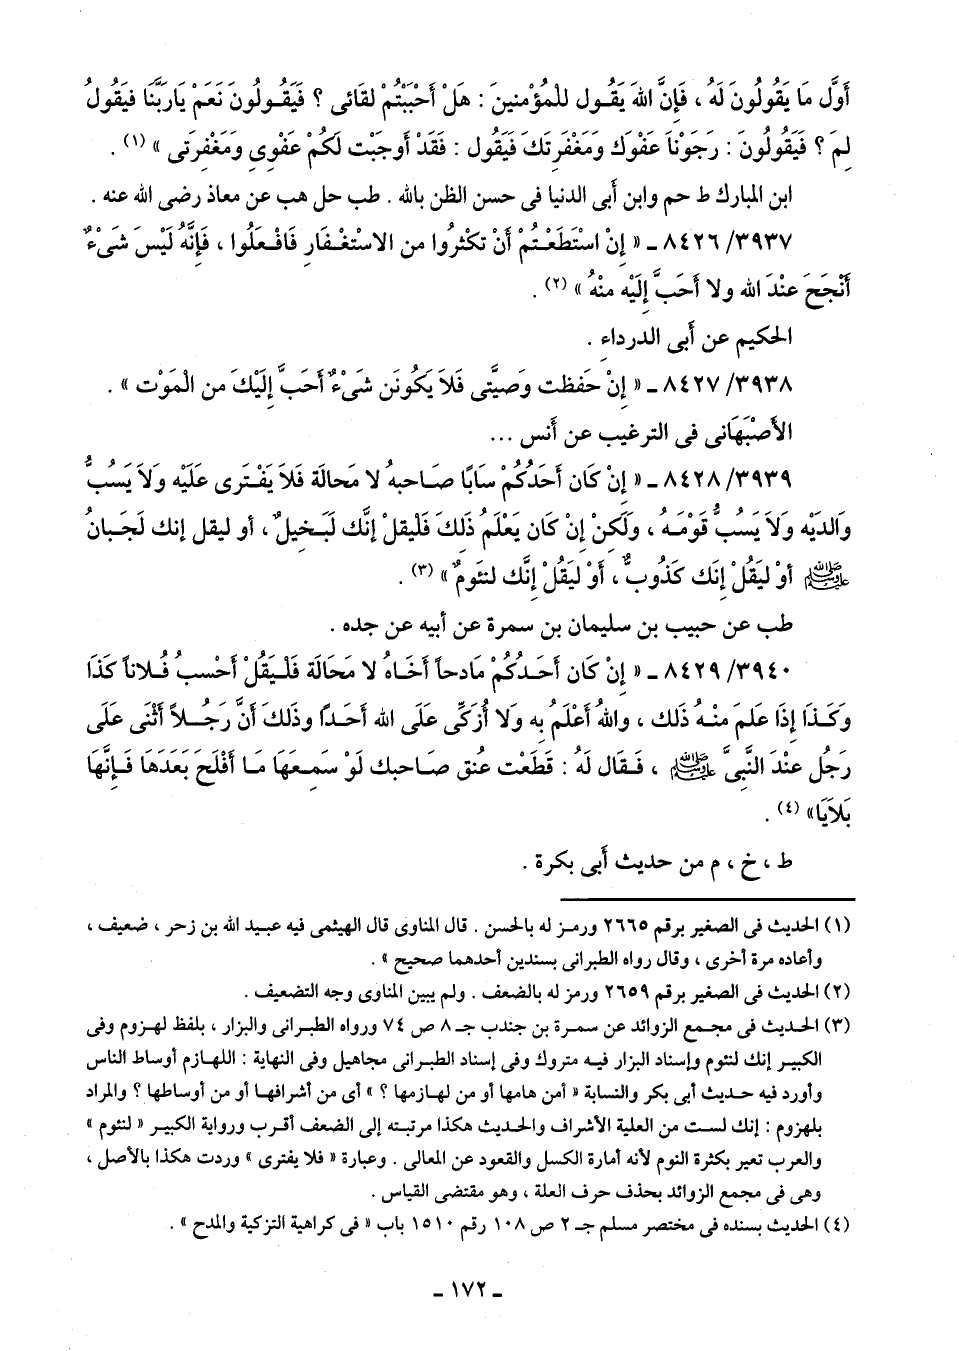 أَوَّل مَا يَقُولُونَ لَهُ ، فَإِنَّ اللهَ يَقُول للْمُؤْمنِينَ : هَلْ أَحْبَبْتُمْ لقَائى ؟ فَيَقُولُونَ نَعَمْ يَارَبَّنَا فيَقُولُ
لِمَ ؟ فَيَقُولُونَ : رَجَوْنَا عَفْوَكَ وَمَغْفرَتِكَ فَيَقُول : فَقَدْ أَوجَبْت لَكُم عَفْوِى وَمَغْفِرَتى » (١) .
ابن المبارك ط حم وابن أبى الدنيا فى حسن الظن بالله . طب حل هب عن معاذ رضى الله عنه .
٨٤٢٦/٣٩٣٧ ـ « إِنْ اسْتَطَعْتُمْ أَنْ تكْثرُوا من الاسْتغْفَارِ فَافْعَلُوا ، فَإِنَّهُ لَيْسَ شَىْءٌ
أَنْجَحَ عنْدَ الله ولا أَحَبَّ إِلَيْه منْهُ » (٢) .
الحكيم عن أَبى الدرداءِ .
٨٤٢٧/٣٩٣٨ ـ « إِنْ حَفظت وَصيَّتى فَلاَ يَكُونَن شَىْءٌ أَحَبَّ إِلَيْكَ من الْمَوْت » .
الأَصْبَهَانى فى الترغيب عن أَنس ...
٨٤٢٨/٣٩٣٩ ـ « إِنْ كَان أَحَدُكُمْ سَابّا صَاحبهُ لا مَحالَة فَلاَ يَفْتَرى عَلَيْه وَلاَ يَسُبُّ
وَالدَيْه وَلاَ يَسُبُّ قَوْمَهُ ، وَلَكنْ إِنْ كَان يَعْلَمُ ذَلكَ فَلْيقلْ إِنَّك لَبَخيلٌ ، أو ليقل إنك لَجَبانُ
ﷺ أوْ ليَقُلْ إنَك كَذُوبٌ ، أَوْ ليَقُلْ إِنَّك لنئَومٌ » (٣) .
طب عن حبيب بن سليمان بن سمرة عن أبيه عن جده .
٨٤٢٩/٣٩٤٠ ـ « إِنْ كَان أَحَدُكُمْ مَادحاً أَخَاهُ لا مَحَالَة فَلْيَقُلْ أَحْسبُ فُلاناً كَذَا
وَكَذَا إِذَا عَلمَ منْهُ ذَلك ، واللهُ أَعْلَمُ به وَلا أُزَكِّى عَلَى الله أَحَداً وذَلكَ أَنَّ رَجُلاً أَثْنى عَلَى
رَجُل عنْدَ النَّبىَّ ﷺ ، فَقَال لَهُ : قَطَعْت عنق صَاحبك لَوْ سَمعَهَا مَا أَفْلَح بَعَدَهَا فَإِنَّهَا
بَلاَيَا» (٤) .
ط ، خ ، م من حديث أَبى بكرة .
(١) الحديث فى الصغير برقم ٢٦٦٥ ورمز له بالحسن . قال المناوى قال الهيثمى فيه عبيد الله بن زحر ، ضعيف ،
وأعاده مرة أخرى ، وقال رواه الطبرانى بسندين أحدهما صحيح » .
(٢) الحديث فى الصغير برقم ٢٦٥٩ ورمز له بالضعف . ولم يبين المناوى وجه التضعيف .
(٣) الحديث فى مجمع الزوائد عن سمرة بن جندب جـ ٨ ص ٧٤ ورواه الطبرانى والبزار ، بلفظ لهزوم وفى
الكبير إنك لنئوم وإسناد البزار فيه متروك وفى إسناد الطبرانى مجاهيل وفى النهاية : اللهازم أوساط الناس
وأورد فيه حديث أبى بكر والنسابة « أمن هامها أو من لهازمها ؟ » أى من أشرافها أو من أوساطها ؟ والمراد
بلهزوم : إنك لست من العلية الأشراف والحديث هكذا مرتبته إلى الضعف أقرب ورواية الكبير « لنئوم »
والعرب تعير بكثرة النوم لأنه أمارة الكسل والقعود عن المعالى . وعبارة « فلا يفترى » وردت هكذا بالأصل ،
وهى فى مجمع الزوائد بحذف حرف العلة ، وهو مقتضى القياس .
(٤) الحديث بسنده فى مختصر مسلم جـ ٢ ص ١٠٨ رقم ١٥١٠ باب « فى كراهية التزكية والمدح » .
ـ ١٧٢ ـ